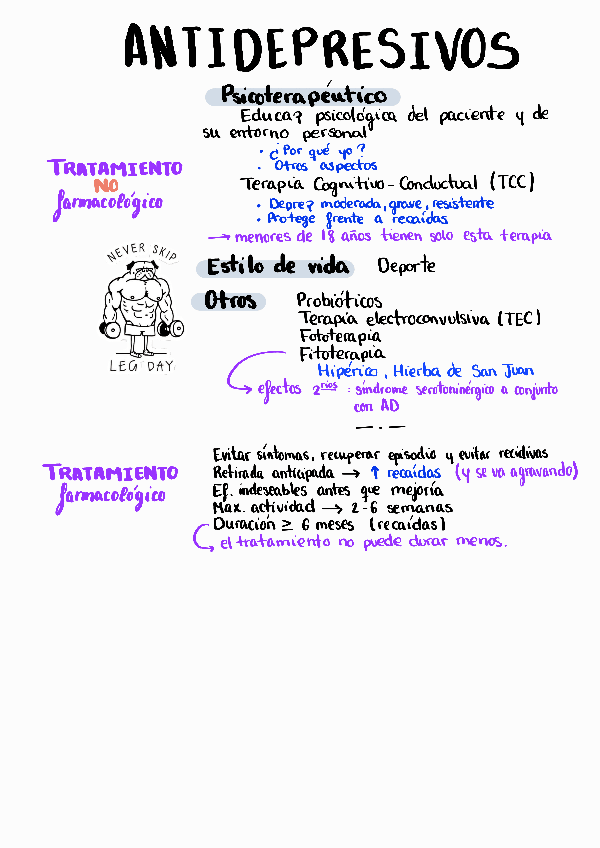 ANTIDEPRESIVOS
Psicoterapéutico
Educa? psicológica del paciente y de
su entorno personal
• ¿Por qué yo?
• Otros aspectos
TRATAMIENTO
NO
farmacológico
Terapia Cognitivo-Conductual (TCC)
• Depre? moderada, grave, resistente
• Protege frente a recaídas
→ menores de 18 años tienen solo esta terapia
NEVER SKIP
LEG DAY
Estilo de vida Deporte
Otros Probióticos
Terapia electroconvulsiva (TEC)
Fototerapia
Fitoterapia
Hipérico, Hierba de San Juan
→ efectos 2rios : síndrome serotoninérgico a conjunto
con AD
TRATAMIENTO
farmacológico
Evitar síntomas, recuperar episodio y evitar recidivas
Retirada anticipada → ↑ recaídas (y se va agravando)
Ef. indeseables antes que mejoría
Max. actividad → 2-6 semanas
Duración ≥ 6 meses (recaídas)
→ el tratamiento no puede durar menos.